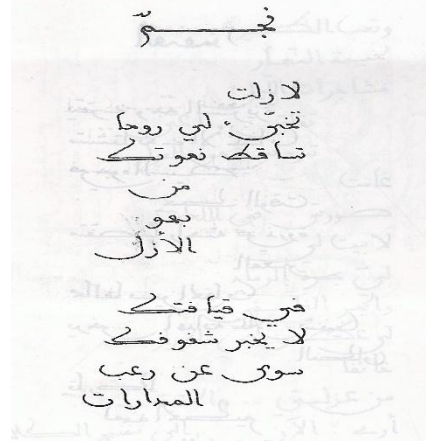 نجمّ
لا زلت
تخبّئ لي روحا
تساقط نعوتك
من
بهو
الأزل
في قيافتك
لا يخبر شفوفك
سوى عن رعب
المدارات